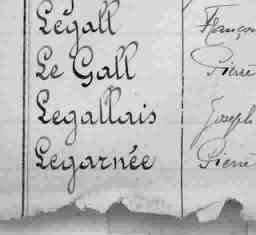 Legall Franço
Le Gall Pierre
Legallais Joseph
Legarnée Pierre